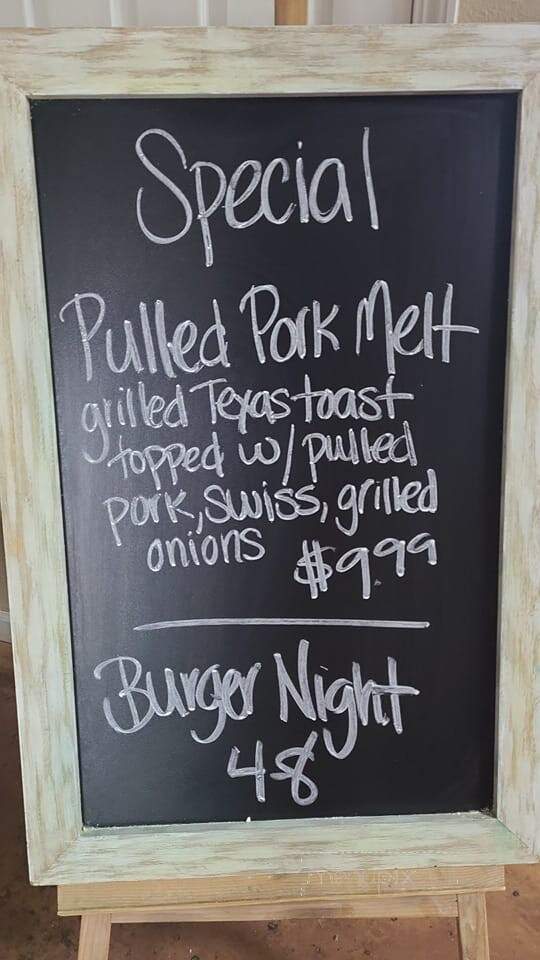 Special
Pulled Pork Melt
grilled Texas toast
topped w/ pulled
pork, swiss, grilled
onions $9.99
Burger Night
4-8